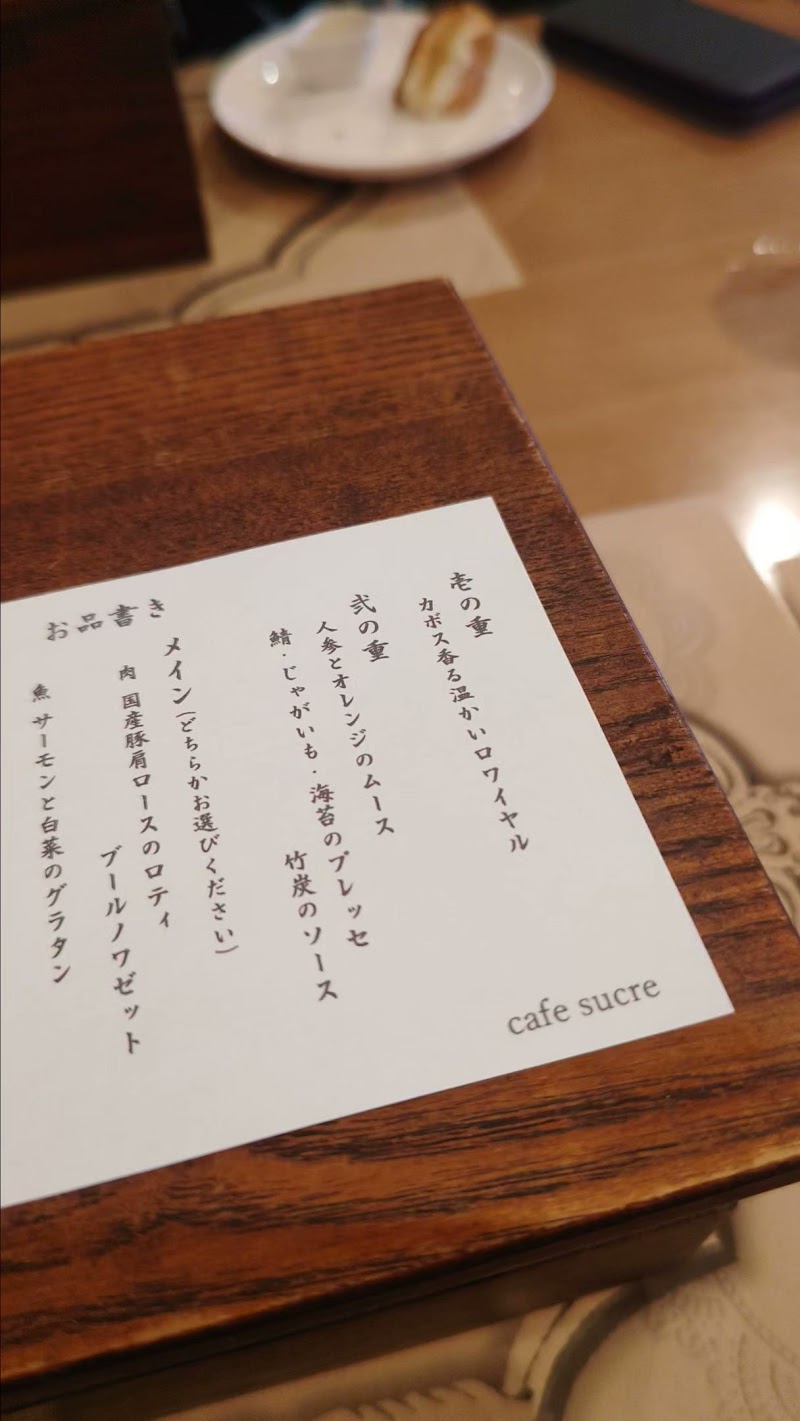 壱の重
カボス香る温かいロワイヤル
弐の重
人参とオレンジのムース
鯖・じゃがいも・海苔のプレッセ
竹炭のソース
メイン(どちらかお選びください)
肉 国産豚肩ロースのロティ
ブールノワゼット
魚 サーモンと白菜のグラタン
お品書き
cafe sucre